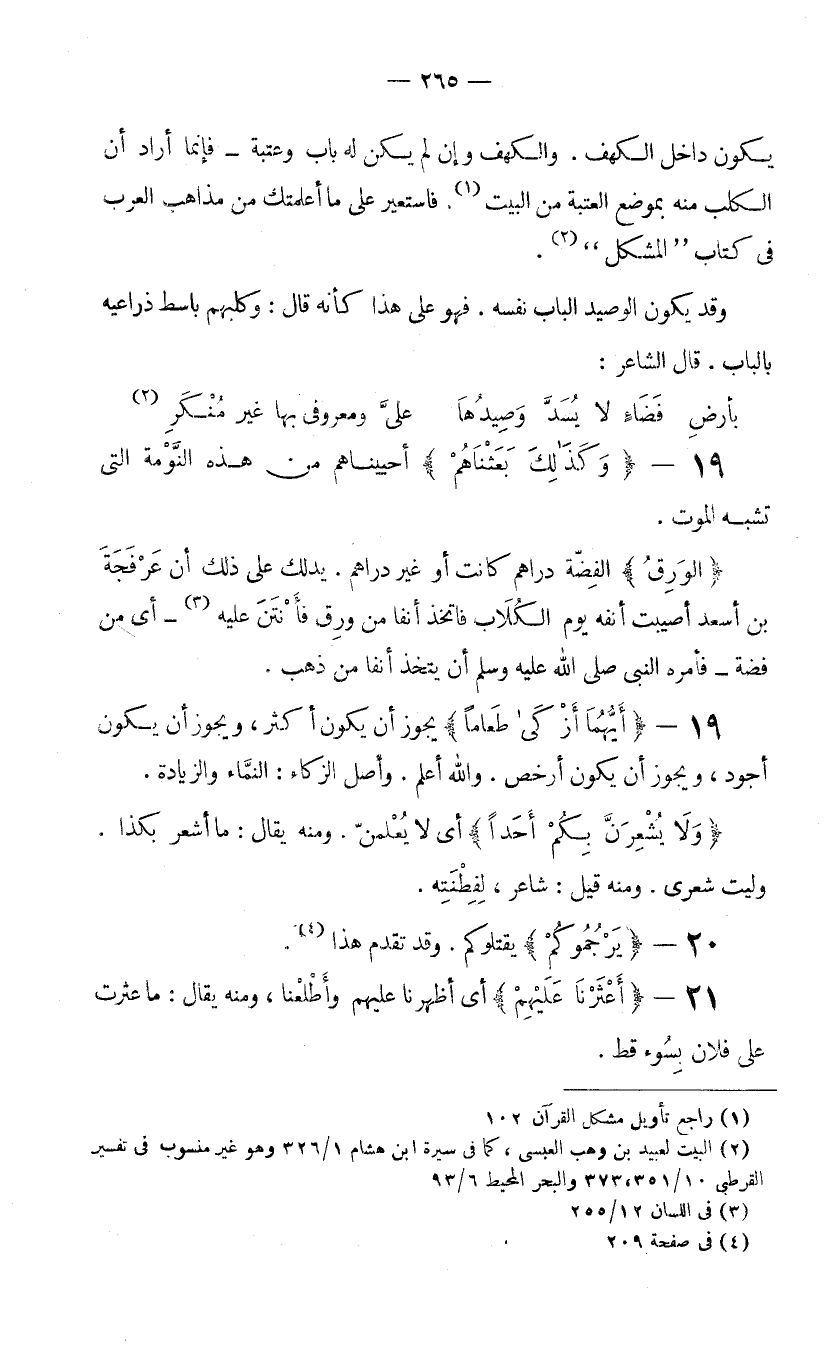 — ٢٦٥ —
يكون داخل الكهف . والكهف وإن لم يكن له باب وعتبة – فإنما أراد أن
الكلب منه بموضع العتبة من البيت (١). فاستعير على ما أعلمتك من مذاهب العرب
فى كتاب ”المشكل“ (٢) .
وقد يكون الوصيد الباب نفسه . فهو على هذا كأنه قال : وكلبهم باسط ذراعيه
بالباب . قال الشاعر :
بأرضِ فَضَاءِ لا يُسَدَّ وَصِيدُهَا علىَّ ومعروفى بها غير مُنْكَرِ (٢)
١٩ — ﴿ وَكَذَٰلِكَ بَعَثْنَاهُمْ ﴾ أحييناهم من هذه النَّوْمة التى
تشبه الموت .
﴿ الوَرِقُ ﴾ الفِضّة دراهم كانت أو غير دراهم . يدلك على ذلك أن عَرْفَجَةَ
بن أسعد أصيبت أنفه يوم الكُلَاب فاتخذ أنفا من ورِق فأَنْتَنَ عليه (٣) – أى من
فضة – فأمره النبى صلى الله عليه وسلم أن يتخذ أنفا من ذهب .
١٩ — ﴿ أَيُّهُمَا أَزْكَىٰ طَعاماً ﴾ يجوز أن يكون أكثر ، ويجوز أن يكون
أجود ، ويجوز أن يكون أرخص . والله أعلم . وأصل الزكاء : النَّماء والزيادة .
﴿ وَلَا يُشْعِرَنَّ بِكُمْ أَحَداً ﴾ أى لا يُعْلمنّ . ومنه يقال : ما أشعر بكذا .
وليت شعرى . ومنه قيل : شاعر ، لِفِطْنَتِه .
٢٠ — ﴿ يَرْجُمُوكُمْ ﴾ يقتلوكم . وقد تقدم هذا (٤) .
٢١ — ﴿ أَعْثَرْنَا عَلَيْهِمْ ﴾ أى أظهرنا عليهم وأَطْلَعْنا ، ومنه يقال : ما عثرت
على فلان بِسُوء قط .
(١) راجع تأويل مشكل القرآن ١٠٢
(٢) البيت لعبيد بن وهب العبسى ، كما فى سيرة ابن هشام ٣٢٦/١ وهو غير منسوب فى تفسير
القرطبى ٣٧٣،٣٥١/١٠ والبحر المحيط ٩٣/٦
(٣) فى اللسان ٢٥٥/١٢
(٤) فى صفحة ٢٠٩